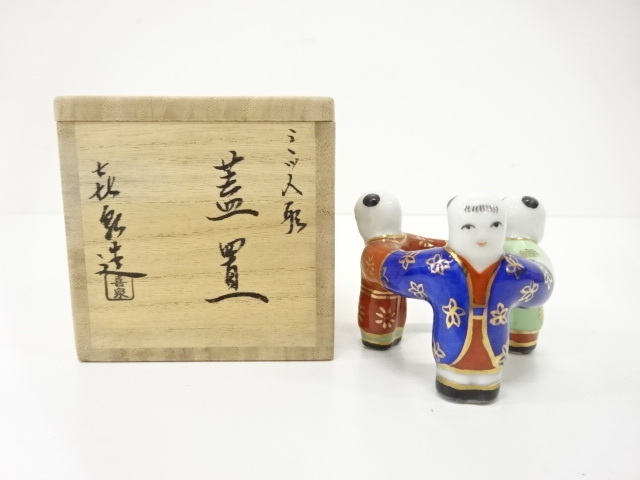 三ッ人形
蓋置
喜泉造
喜泉